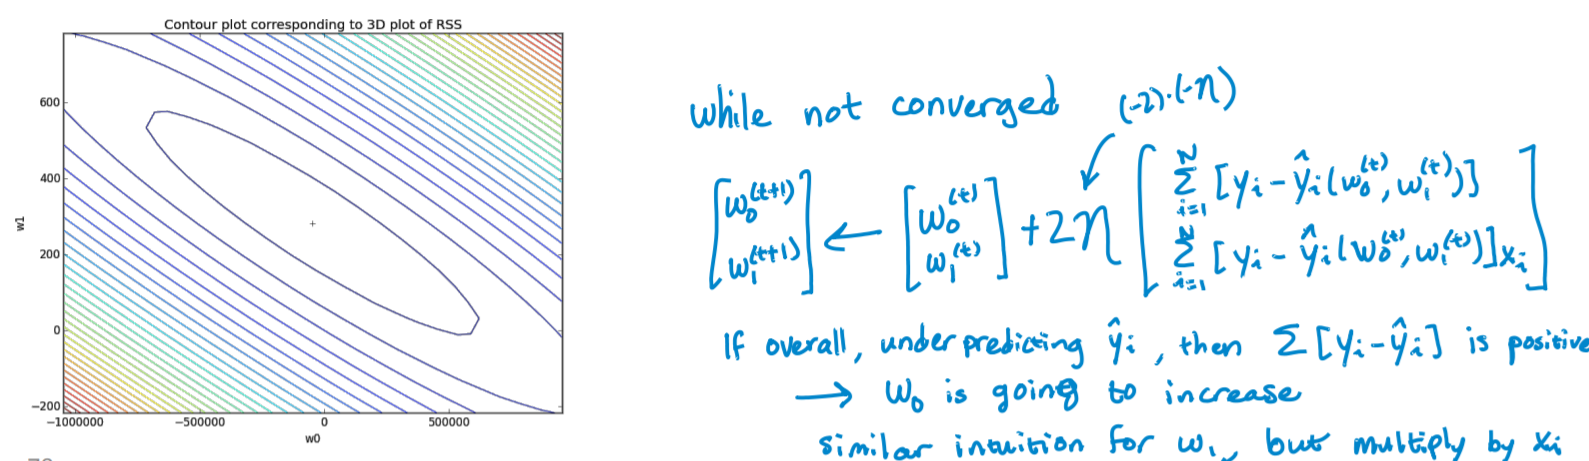 Contour plot corresponding to 3D plot of RSS
600
400
200
0
−200
w1
−1000000 −500000 0 500000
w0
while not converged (-2)·(-η)
[w₀^(t+1) w₁^(t+1)] ← [w₀^(t) w₁^(t)] + 2η [Σ_{i=1}^N [yᵢ - ŷᵢ(w₀^(t), w₁^(t))] Σ_{i=1}^N [yᵢ - ŷᵢ(w₀^(t), w₁^(t))]xᵢ]
If overall, underpredicting ŷᵢ, then Σ[yᵢ-ŷᵢ] is positive
→ w₀ is going to increase
similar intuition for w₁, but multiply by xᵢ